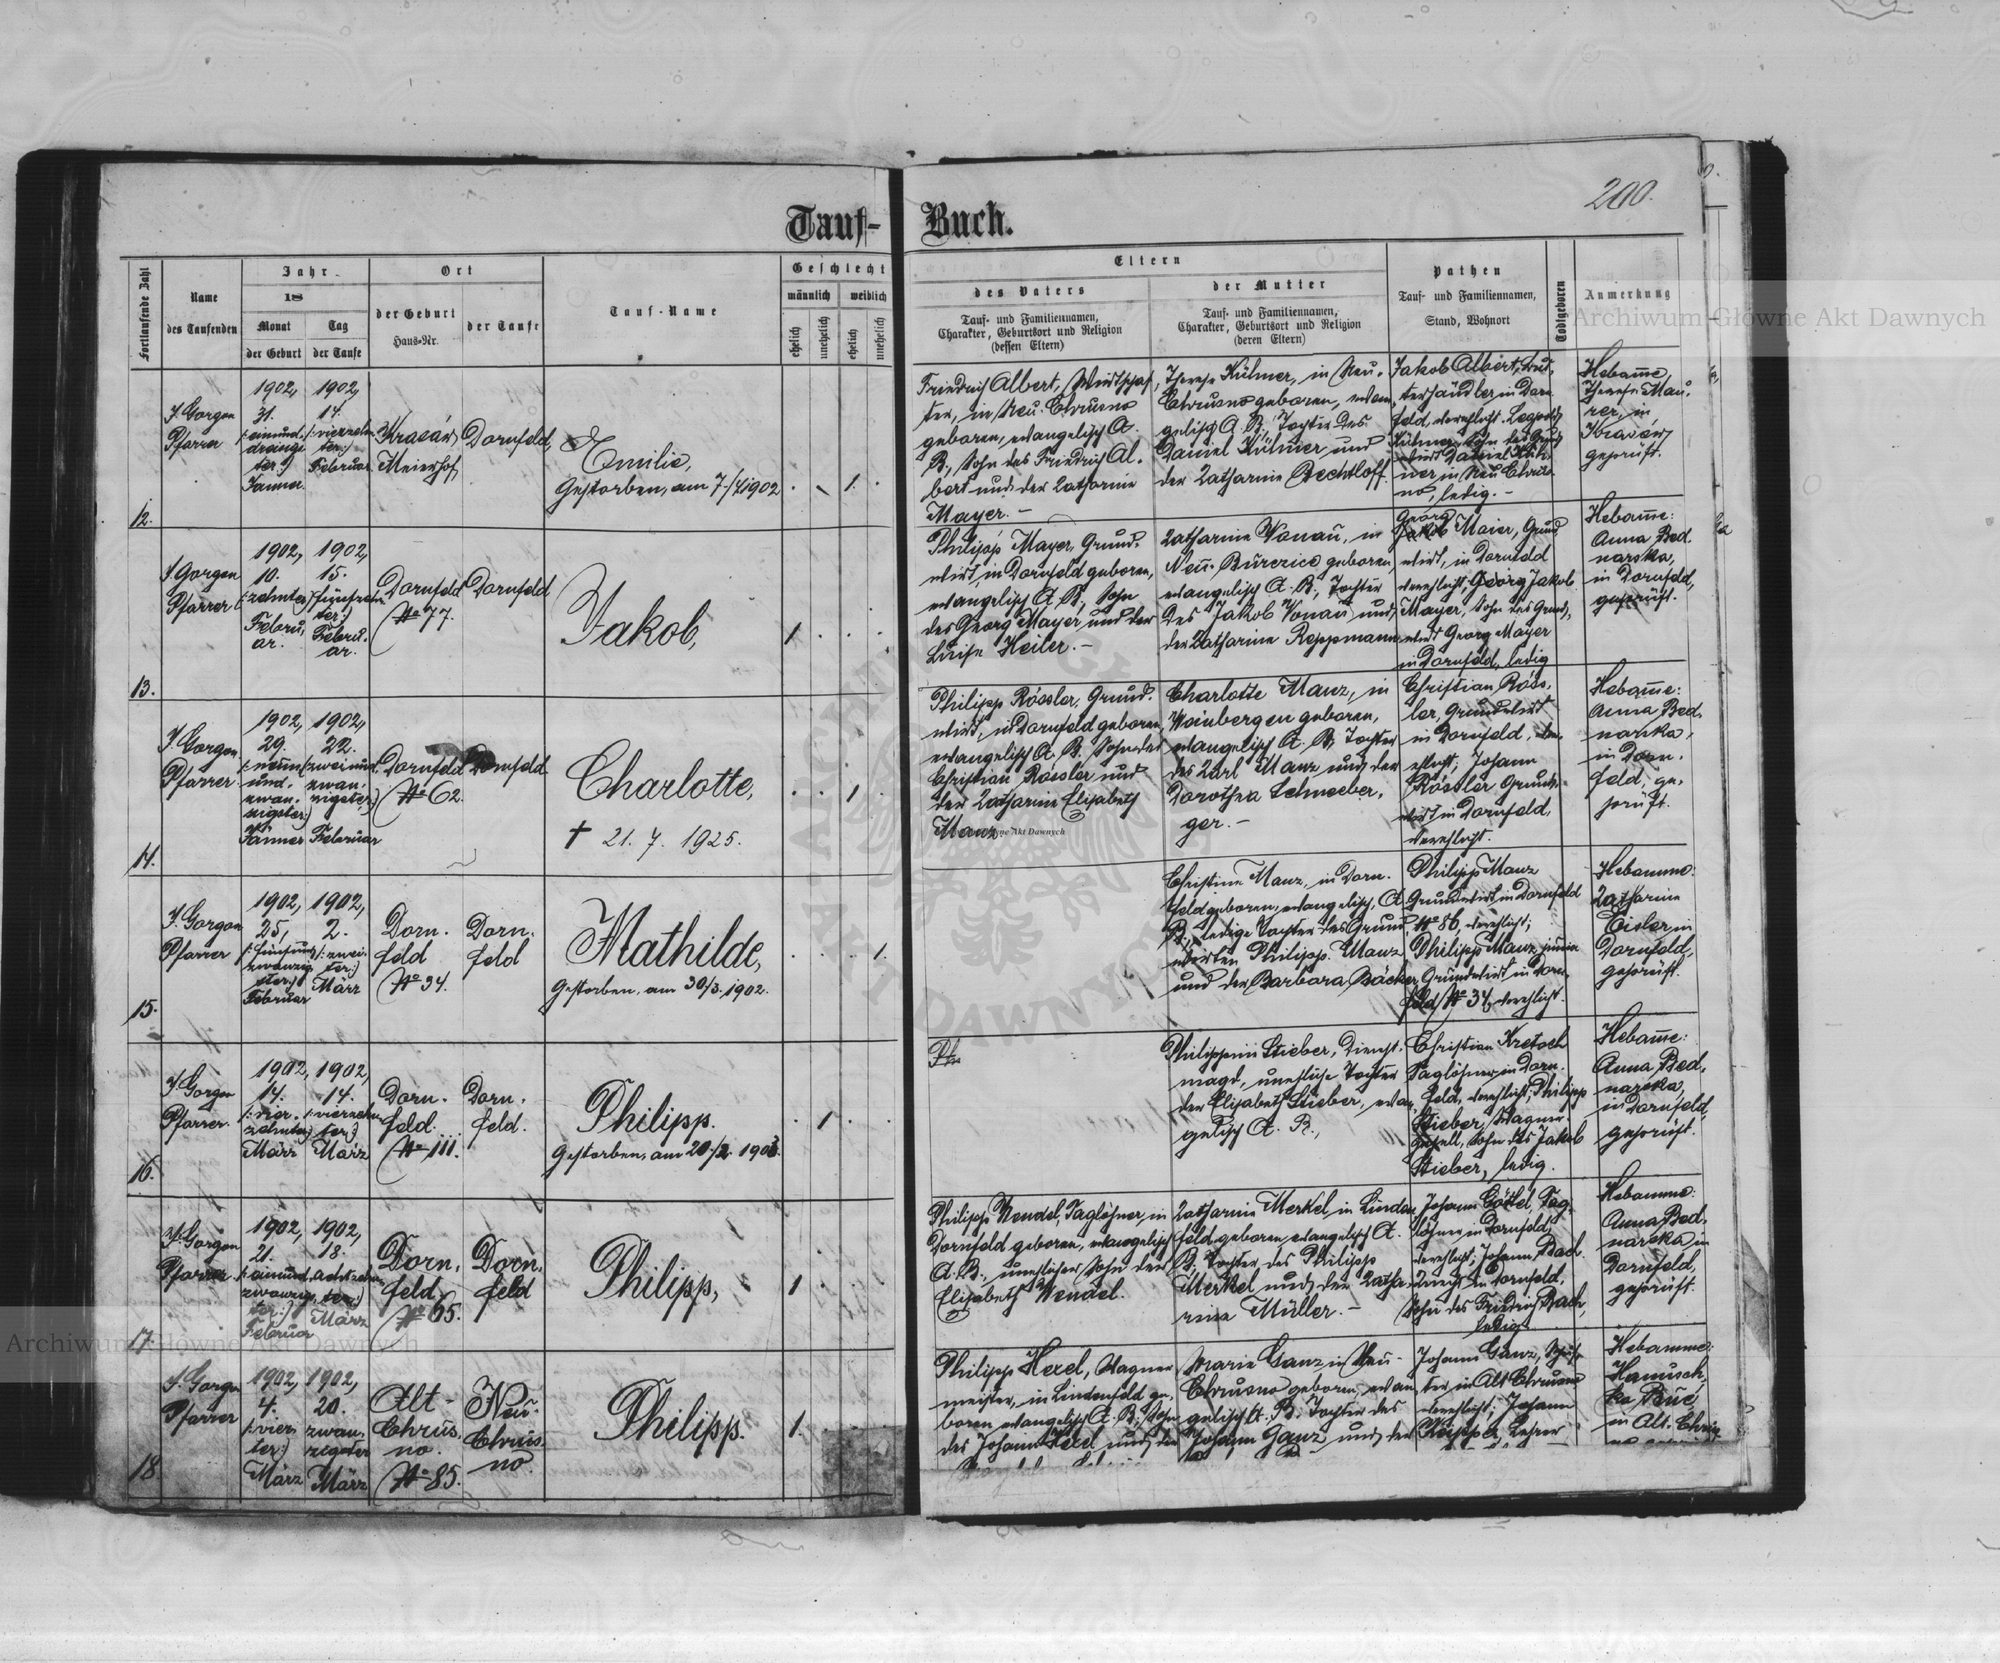 200.
Tauf-Buch.
Fortlaufende Zahl
Name
des Taufenden
Jahr
18
Monat
der Geburt
Tag
der Taufe
Ort
der Geburt
Haus-Nr.
der Taufe
Tauf-Name
Geschlecht
männlich
weiblich
ehelich
unehelich
ehelich
unehelich
Eltern
des Vaters
Tauf- und Familiennamen,
Charakter, Geburtsort und Religion
(dessen Eltern)
der Mutter
Tauf- und Familiennamen,
Charakter, Geburtsort und Religion
(deren Eltern)
Pathen
Tauf- und Familiennamen,
Stand, Wohnort
Todtgeboren
Anmerkung
Archiwum Główne Akt Dawnych
12.
J. Gorgon
Pfarrer
1902,
31.
(: einund.
dreissigs
ter:)
Jänner.
1902,
14.
(: vierzehn
ter:)
Februar
Meierhof,
Dornfeld,
Emilie,
Gestorben, am 7./4 1902
1.
Friedrich Albert, Wirtschaf
ter, in Neu-Chrusno
geboren, evangelisch A.
B., Sohn des Friedrich Al.
bert und der Katharine
Mayer. –
Therese Külmer, in Neu-
Chrusno geboren, evan
gelisch A. B., Tochter des
Daniel Külmer und
der Katharine Bechtloff.
Jakob Albert,
terhändler in Dorn
feld, verehlicht.
Külmer, Sohn des Grund
wirt Daniel Kül.
mer, in Neu Chrus.
no, ledig. –
Hebamme,
Therese Mau.
rer, in
geprüft.
13.
J. Gorgon
Pfarrer
1902,
10.
(: zehnter:)
Febru,
ar.
1902,
15.
(: fünfzehn
ter:)
Febru.
ar.
Dornfeld
No 77.
Dornfeld
Jakob,
1
Philipp Mayer, Grund.
wirt, in Dornfeld geboren,
evangelisch A. B., Sohn
des Georg Mayer und der
Luise Heiler. –
Katharine Vonau, in
Neu-Burczice geboren
evangelisch A. B., Tochter
des Jakob Vonau und
der Katharine Reppmann
Georg
Jakob Maier, Grund
wirt, in Dornfeld
verehlicht, Georg Jakob
Mayer, Sohn des Grund,
wirt Georg Mayer
in Dornfeld, ledig
Hebamme:
Anna Bed.
narska,
in Dornfeld,
geprüft.
14.
J. Gorgon
Pfarrer
1902,
29.
(: neun
und.
zwan.
zigster:)
Jänner
1902,
22.
(zweiund
zwan.
zigster:)
Februar
Dornfeld
No 62.
Dornfeld
Charlotte,
† 21. 7. 1925.
1
Philipp Rössler, Grund.
wirt, in Dornfeld geboren
evangelisch A. B. Sohn des
Christian Roessler und
der Katharine Elisabeth
Manz.
Charlotte Manz, in
Weinbergen geboren,
evangelisch A. B., Tochter
des Karl Manz und der
Dorothea Schneeber,
ger. –
Christian Röss,
ler, Grundwirt
in Dornfeld, ver.
ehlicht; Johann
Rössler Grund.
wirt in Dornfeld,
verehlicht.
Hebamme:
Anna Bed.
narska,
in Dorn.
feld, ge.
prüft.
15.
J. Gorgon
Pfarrer
1902,
25,
(: fünfund
zwanzig
ster:)
Februar
1902,
2.
(: zwei.
ter:)
März
Dorn.
feld
No 34.
Dorn.
feld
Mathilde,
Gestorben, am 30/3. 1902.
1.
Christine Manz, in Dorn.
feld geboren, evangelisch, A
B., ledige Tochter des Grund
wirten Philipp Manz
und der Barbara Bäcker
Philipp Manz
Grundwirt in Dornfeld
No 86, verehlicht;
Philipp Manz, junior
Grundwirt in Dorn.
feld No 34, verehlicht.
Hebamme:
Katharine
Eisler in
Dornfeld,
geprüft.
16.
J. Gorgon
Pfarrer.
1902,
14.
(: vier.
zehnter:)
März
1902,
14.
(: vierzehn
ter:)
März
Dorn.
feld.
No 111.
Dorn.
feld.
Philipp.
1
Philippine Stieber, Dienst.
magd, uneheliche Tochter
der Elisabeth Stieber, evan
gelisch A. B.,
Christian Kretsch
Taglöhner in Dorn.
feld, verehlicht, Philipp
Stieber, Wagner
gesell, Sohn des Jakob
Stieber, ledig.
Hebamme:
Anna Bed.
narska,
in Dornfeld,
geprüft.
17.
J. Gorgon
Pfarrer
1902,
21.
(: einund,
zwanzig,
ter:)
Februar
1902,
18.
achtzehn
ter:)
März
Dorn,
feld.
No 65.
Dorn.
feld
Philipp,
1
Philipp Wendel, Taglöhner, in
Dornfeld geboren, evangelisch
A. B., unehlicher Sohn der
Elisabeth Wendel.
Katharine Merkel, in Linden
feld geboren, evangelisch A.
B., Tochter des Philipp
Merkel und der Katha.
rina Müller. –
Johann Göttel, Tag.
löhner in Dornfeld,
verehlicht, Johann Bach
Knecht in Dornfeld,
Sohn des Friedrich Bach
ledig.
Hebamme:
Anna Bed.
narska in
Dornfeld,
geprüft.
18.
J. Gorgon
Pfarrer
1902,
4.
(: vier
ter:)
März
1902,
20.
zwan.
zigster
März
Alt-
Chrus.
no.
No 85.
Neu-
Chrus
no.
Philipp.
1.
Philipp Hexel, Wagner
meister, in Lindenfeld ge.
boren, evangelisch A. B., Sohn
des Johann Hexel und der
Marie Ganz in Neu-
Chrusno geboren, evan
gelisch A. B. Tochter des
Johann Ganz und der
Johann Ganz,
ter in Alt Chrusno
verehlicht; Johann
Lehrer
Hebamme:
in Alt. Chrus
Archiwum Główne Akt Dawnych